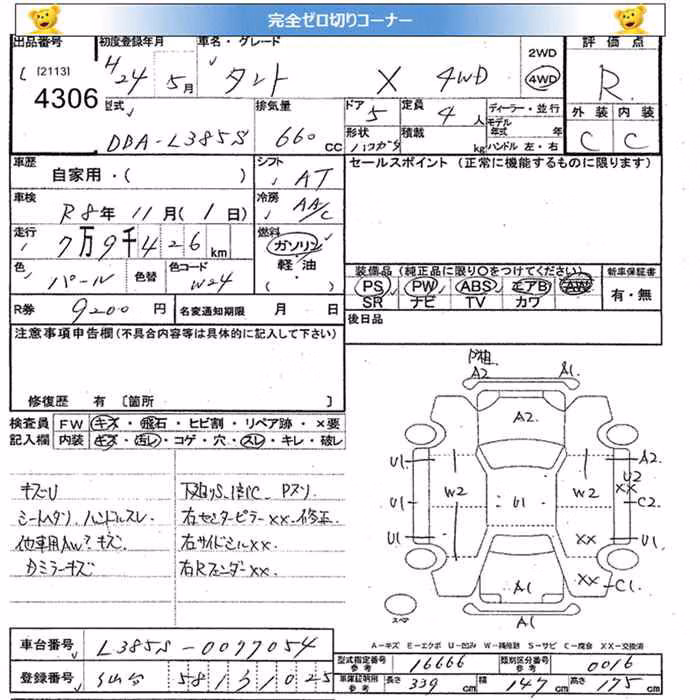 完全ゼロ切りコーナー
出品番号 初度登録年月 車名・グレード 2WD 評価点
(2113) H24 5月 タント X 4WD 4WD R
4306
型式 排気量 ドア 定員 ディーラー・並行 外装 内装
DBA-L385S 660 CC 5 4人 モデル年式 年 C C
形状 積載 kg ハンドル 左・右
車歴 シフト セールスポイント(正常に機能するものに限ります)
自家用・( ) AT
車検 冷房
R8年 11月(1日) AA/C
走行 燃料
7万9千426km ガソリン
色 色替 色コード 軽油
パール W24 ( )
装備品(純正品に限り○をつけてください) 新車保証書
PS PW ABS エアB AW 有・無
SR ナビ TV カワ
R券 9200円 名変通知期限 月 日
後日品
注意事項申告欄(不具合内容等は具体的に記入して下さい)
修復歴 有 [箇所 ]
検査員 FW キズ・飛石・ヒビ割・リペア跡・×要
記入欄 内装 キズ・汚レ・コゲ・穴・スレ・キレ・破レ
キズU
シートヘタリ、ハンドルスレ
右センターピラーXX、修正
他車用AW?キズ 右サイドシルXX
Dミラーキズ 右RフェンダーXX
A2 A1
A2
U1 A2
U2
XX
W2 W2
U1 U1 C2
U1 XX U1
XX C1
A1
スペア A1
A-キズ E-エクボ U-凹み W-補修跡 S-サビ C-腐食 XX-交換済
車台番号 L385S-0077054
型式指定番号 参考 16666 類別区分番号 参考 0016
登録番号 仙台 581 51025
車庫証明用 参考 長さ 339cm 幅 147cm 高さ 175cm